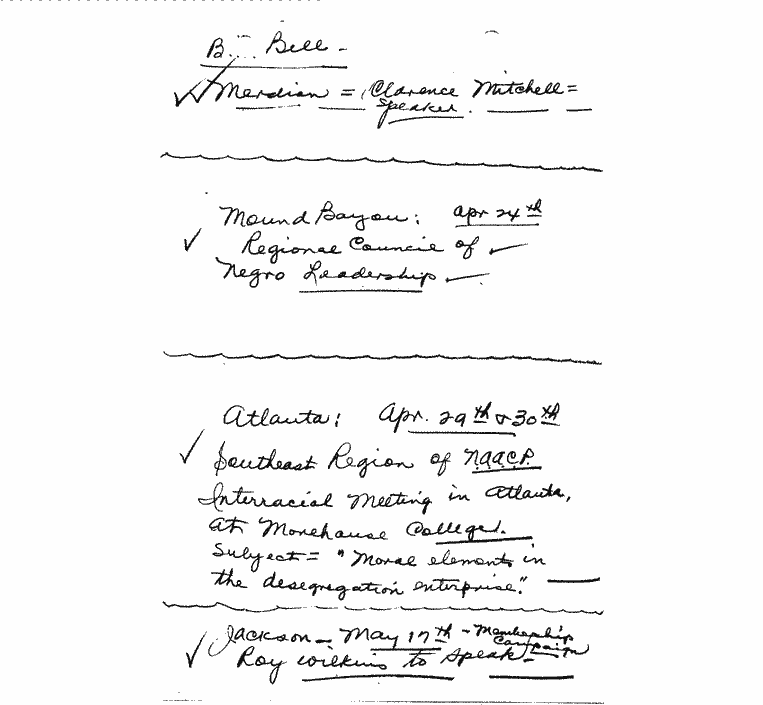 B. Bell -
Merdian = Clarence Mitchell =
Speaker.
Mound Bayou: Apr 24th
Regional Council of
Negro Leadership
Atlanta: Apr. 29th & 30th
Southeast Region of N.A.A.C.P.
Interracial Meeting in Atlanta,
At Morehouse College.
Subject = "Moral elements in
the desegregation enterprise."
Jackson - May 17th - Membership
Campaign
Roy Wilkins to Speak -